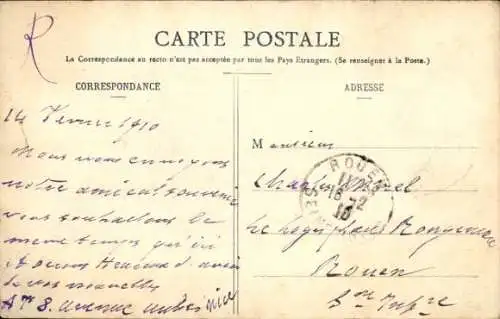 R
CARTE POSTALE
La Correspondance au recto n'est pas acceptée par tous les Pays Etrangers. (Se renseigner à la Poste.)
CORRESPONDANCE
ADRESSE
14 Février 1910
Nous vous envoyons
notre amical souvenir
vous souhaitons le
même temps qu'ici
heureux d'avoir
de vos nouvelles
8. avenue
M onsieur
Charles Morel
Rouen
Sne Infre
ROUEN
16 - 2
10